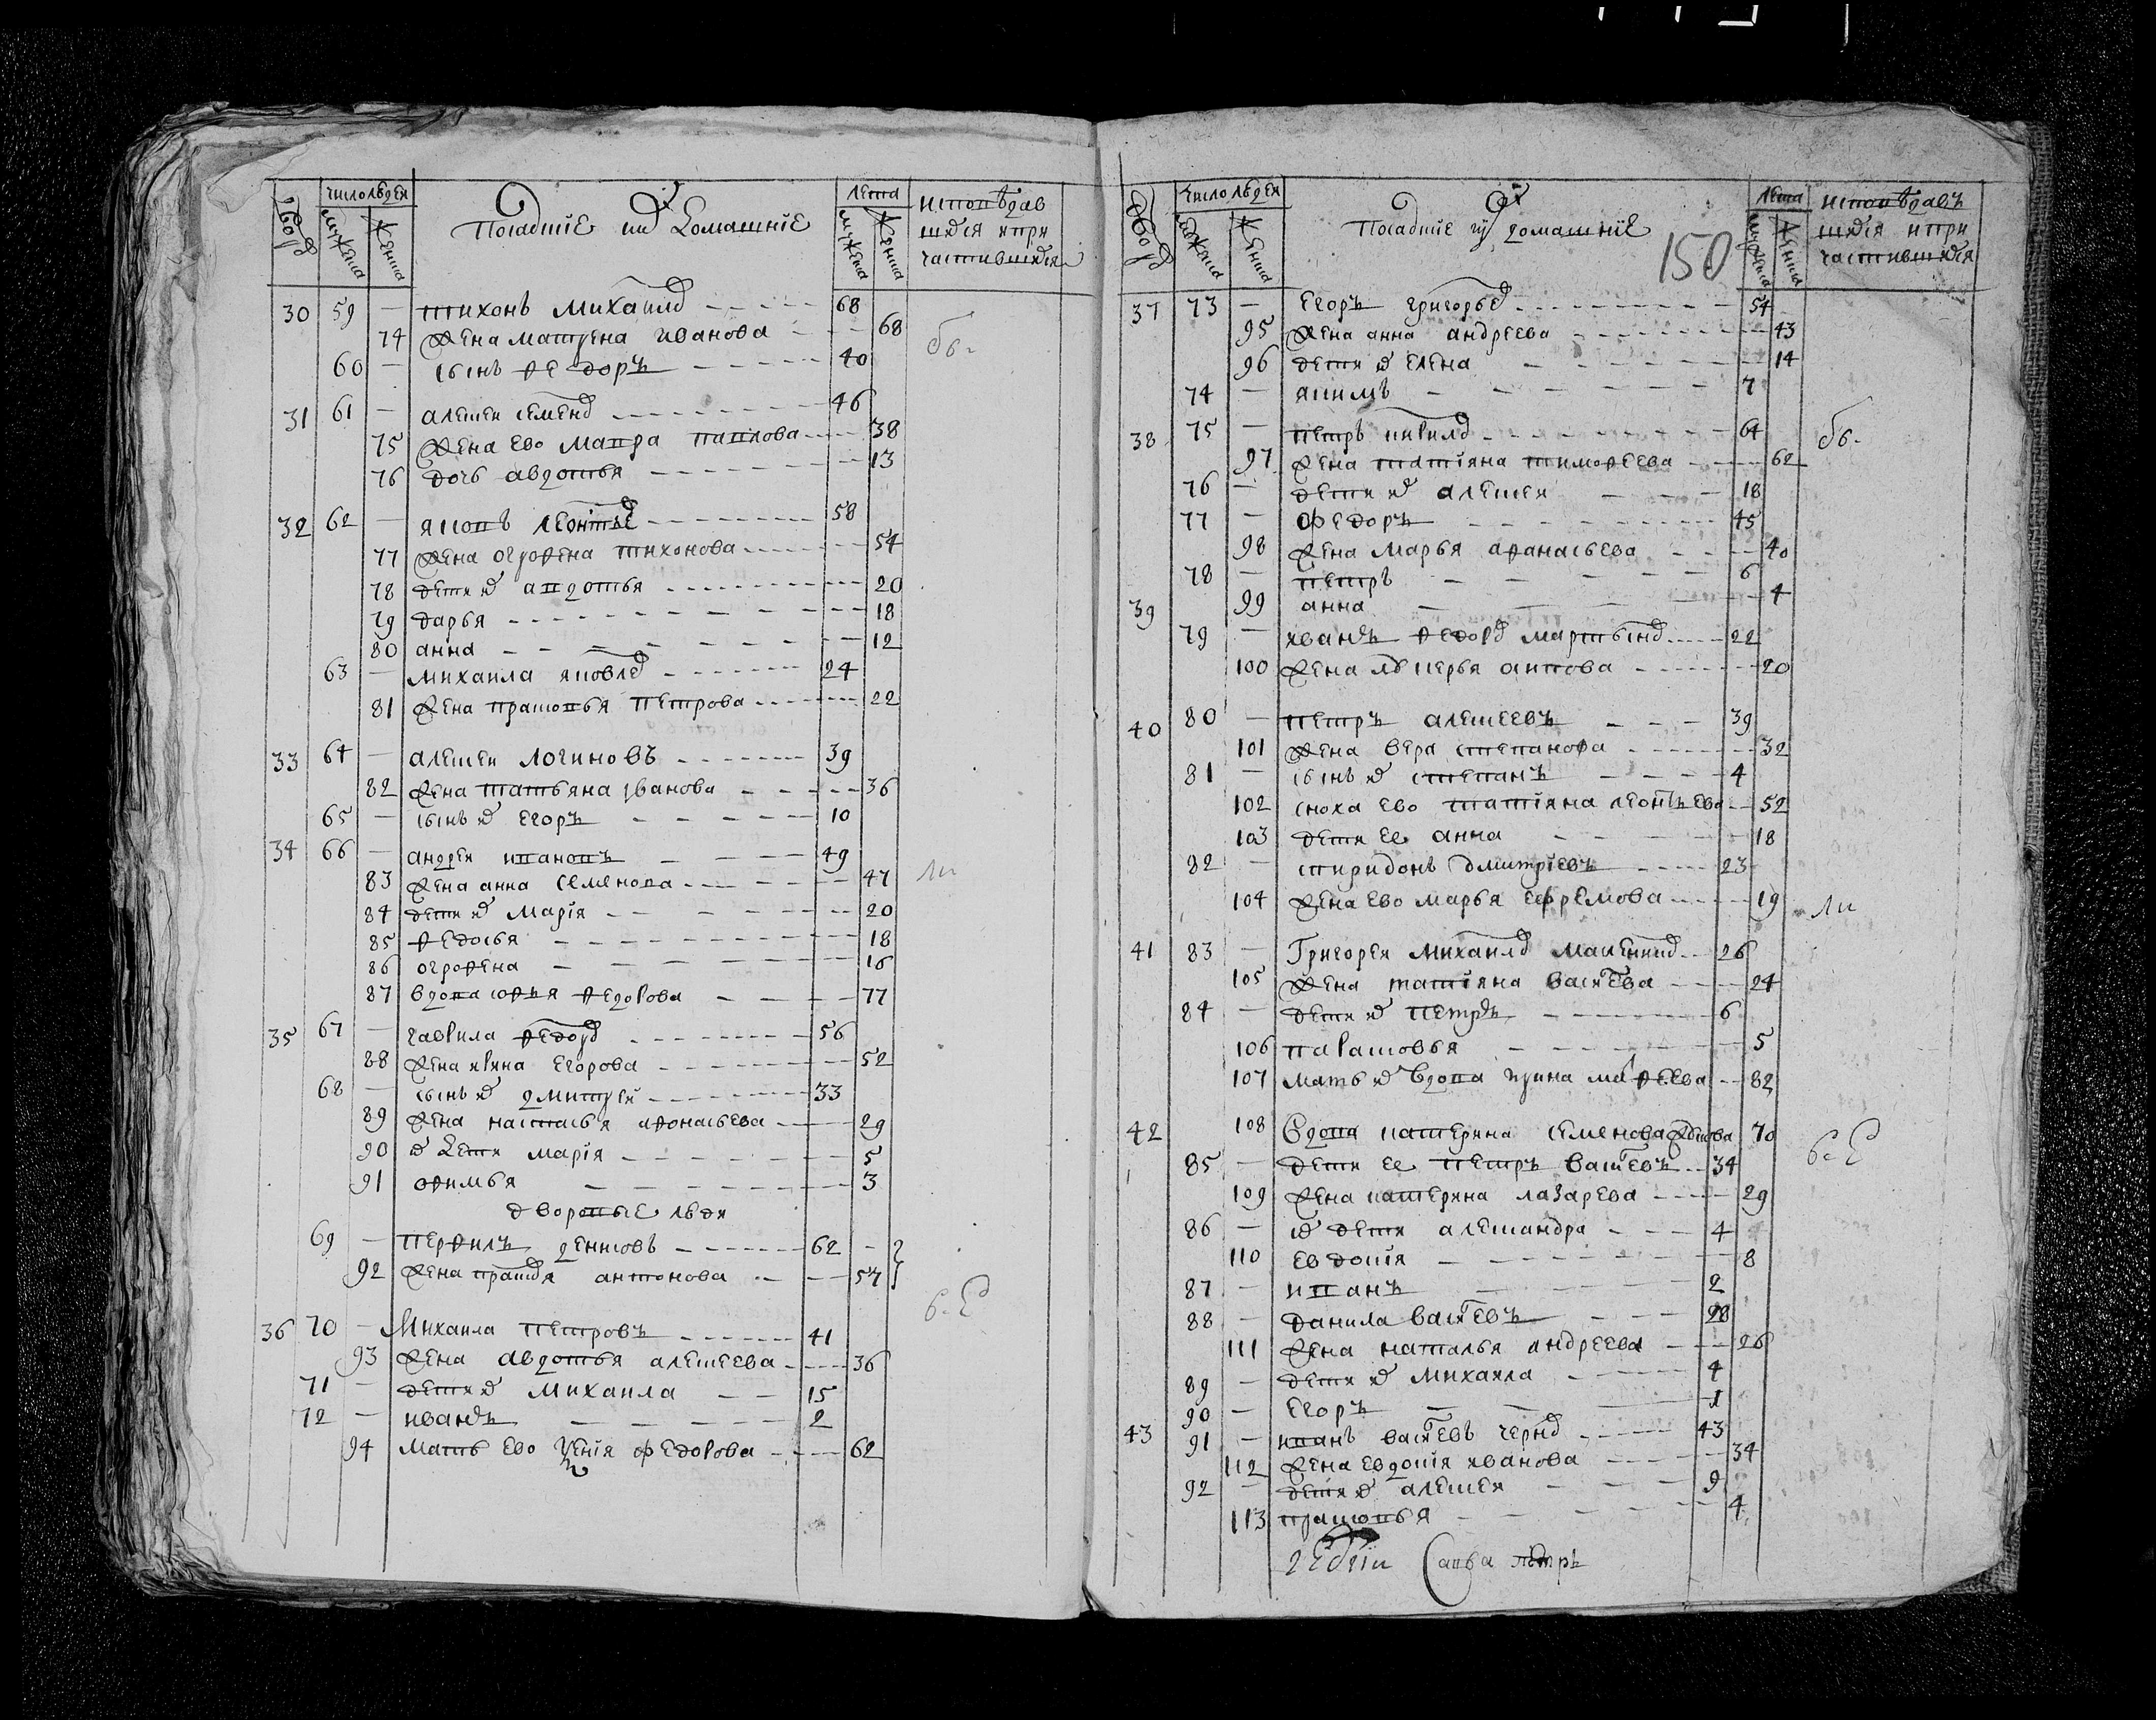 Дворъ числолюдей Посадскiе ихъ домашнiе лета исповедав
мужеска женска мужеска женска шихся и при
частившихся
30 59 — тихонъ михаилъ — 68
74 жена матрена иванова — 68
60 — сынъ федоръ — 40
31 61 — алексеи семенъ — 46
75 жена ево мавра павлова — 38
76 дочь авдотья — 13
32 62 — яковъ леонтье — 58
77 жена огрофена тихонова — 54
78 дети их авдотья — 20
79 дарья — 18
80 анна — 12
63 — михаила яковле — 24
81 жена прасковья петрова — 22
33 64 — алексеи логиновъ — 39
82 жена татьяна иванова — 36
65 — сынъ их егоръ — 10
34 66 — андреи ивановъ — 49
83 жена анна семенова — 47
84 дети их марiя — 20
85 федосья — 18
86 огрофена — 16
87 вдова софья федорова — 77
35 67 — гаврила федоръ — 56
88 жена ирина егорова — 52
68 — сынъ их дмитреи — 33
89 жена настасья афонасьева — 29
90 их дети марiя — 5
91 офимья — 3
дворовые люди
69 — перфилъ денисовъ — 62
92 жена праскея антонова — 57
36 70 — Михаила петровъ — 41
93 жена авдотья алексеева — 36
71 — дети их михаила — 15
72 — иванъ — 2
94 мать ево ксенiя федорова — 62
бы.
ли
у. С.
Дворъ числолюдей Посадскiе их домашнiе лета исповедавъ
мужеска женска 150 мужеска женска шихся и при
частившихся
37 73 — егоръ григорье — 54
95 жена анна андреева — 43
96 дети их елена — 14
74 — якимъ — 7
38 75 — петръ кирилъ — 64
97 жена татiяна тимофеева — 62
76 — дети их алексеи — 18
77 — федоръ — 45
98 жена марья афанасьева — 40
78 — петръ — 6
39 99 анна — 4
79 — иванъ федоръ мартынъ — 22
100 жена лукерья аникова — 20
40 80 — петръ алексеевъ — 39
101 жена вера степанова — 32
81 — сынъ их степанъ — 4
102 сноха ево татiяна леонтьева — 52
103 дети ее анна — 18
82 — спиридонъ дмитрiевъ — 23
104 жена ево марья ефремова — 19
41 83 — Григореи михаилъ — 26
105 жена татiяна василева — 24
84 — дети их петръ — 6
106 парасковья — 5
107 мать их вдова ирина мафеева — 82
42 108 Вдова катерина семенова 70
85 — дети ее петръ василевъ — 34
109 жена катерина лазарева — 29
86 — их дети александра — 4
110 евдокiя — 8
87 — иванъ — 2
88 — данила василевъ — 28
111 жена наталья андреева — 26
89 — дети их михаила — 4
90 — егоръ — 1
43 91 — иванъ василевъ — 43
112 жена евдокiя иванова — 34
92 — дети их алексеи — 9
113 прасковья — 4
бы.
ли
Савва петръ